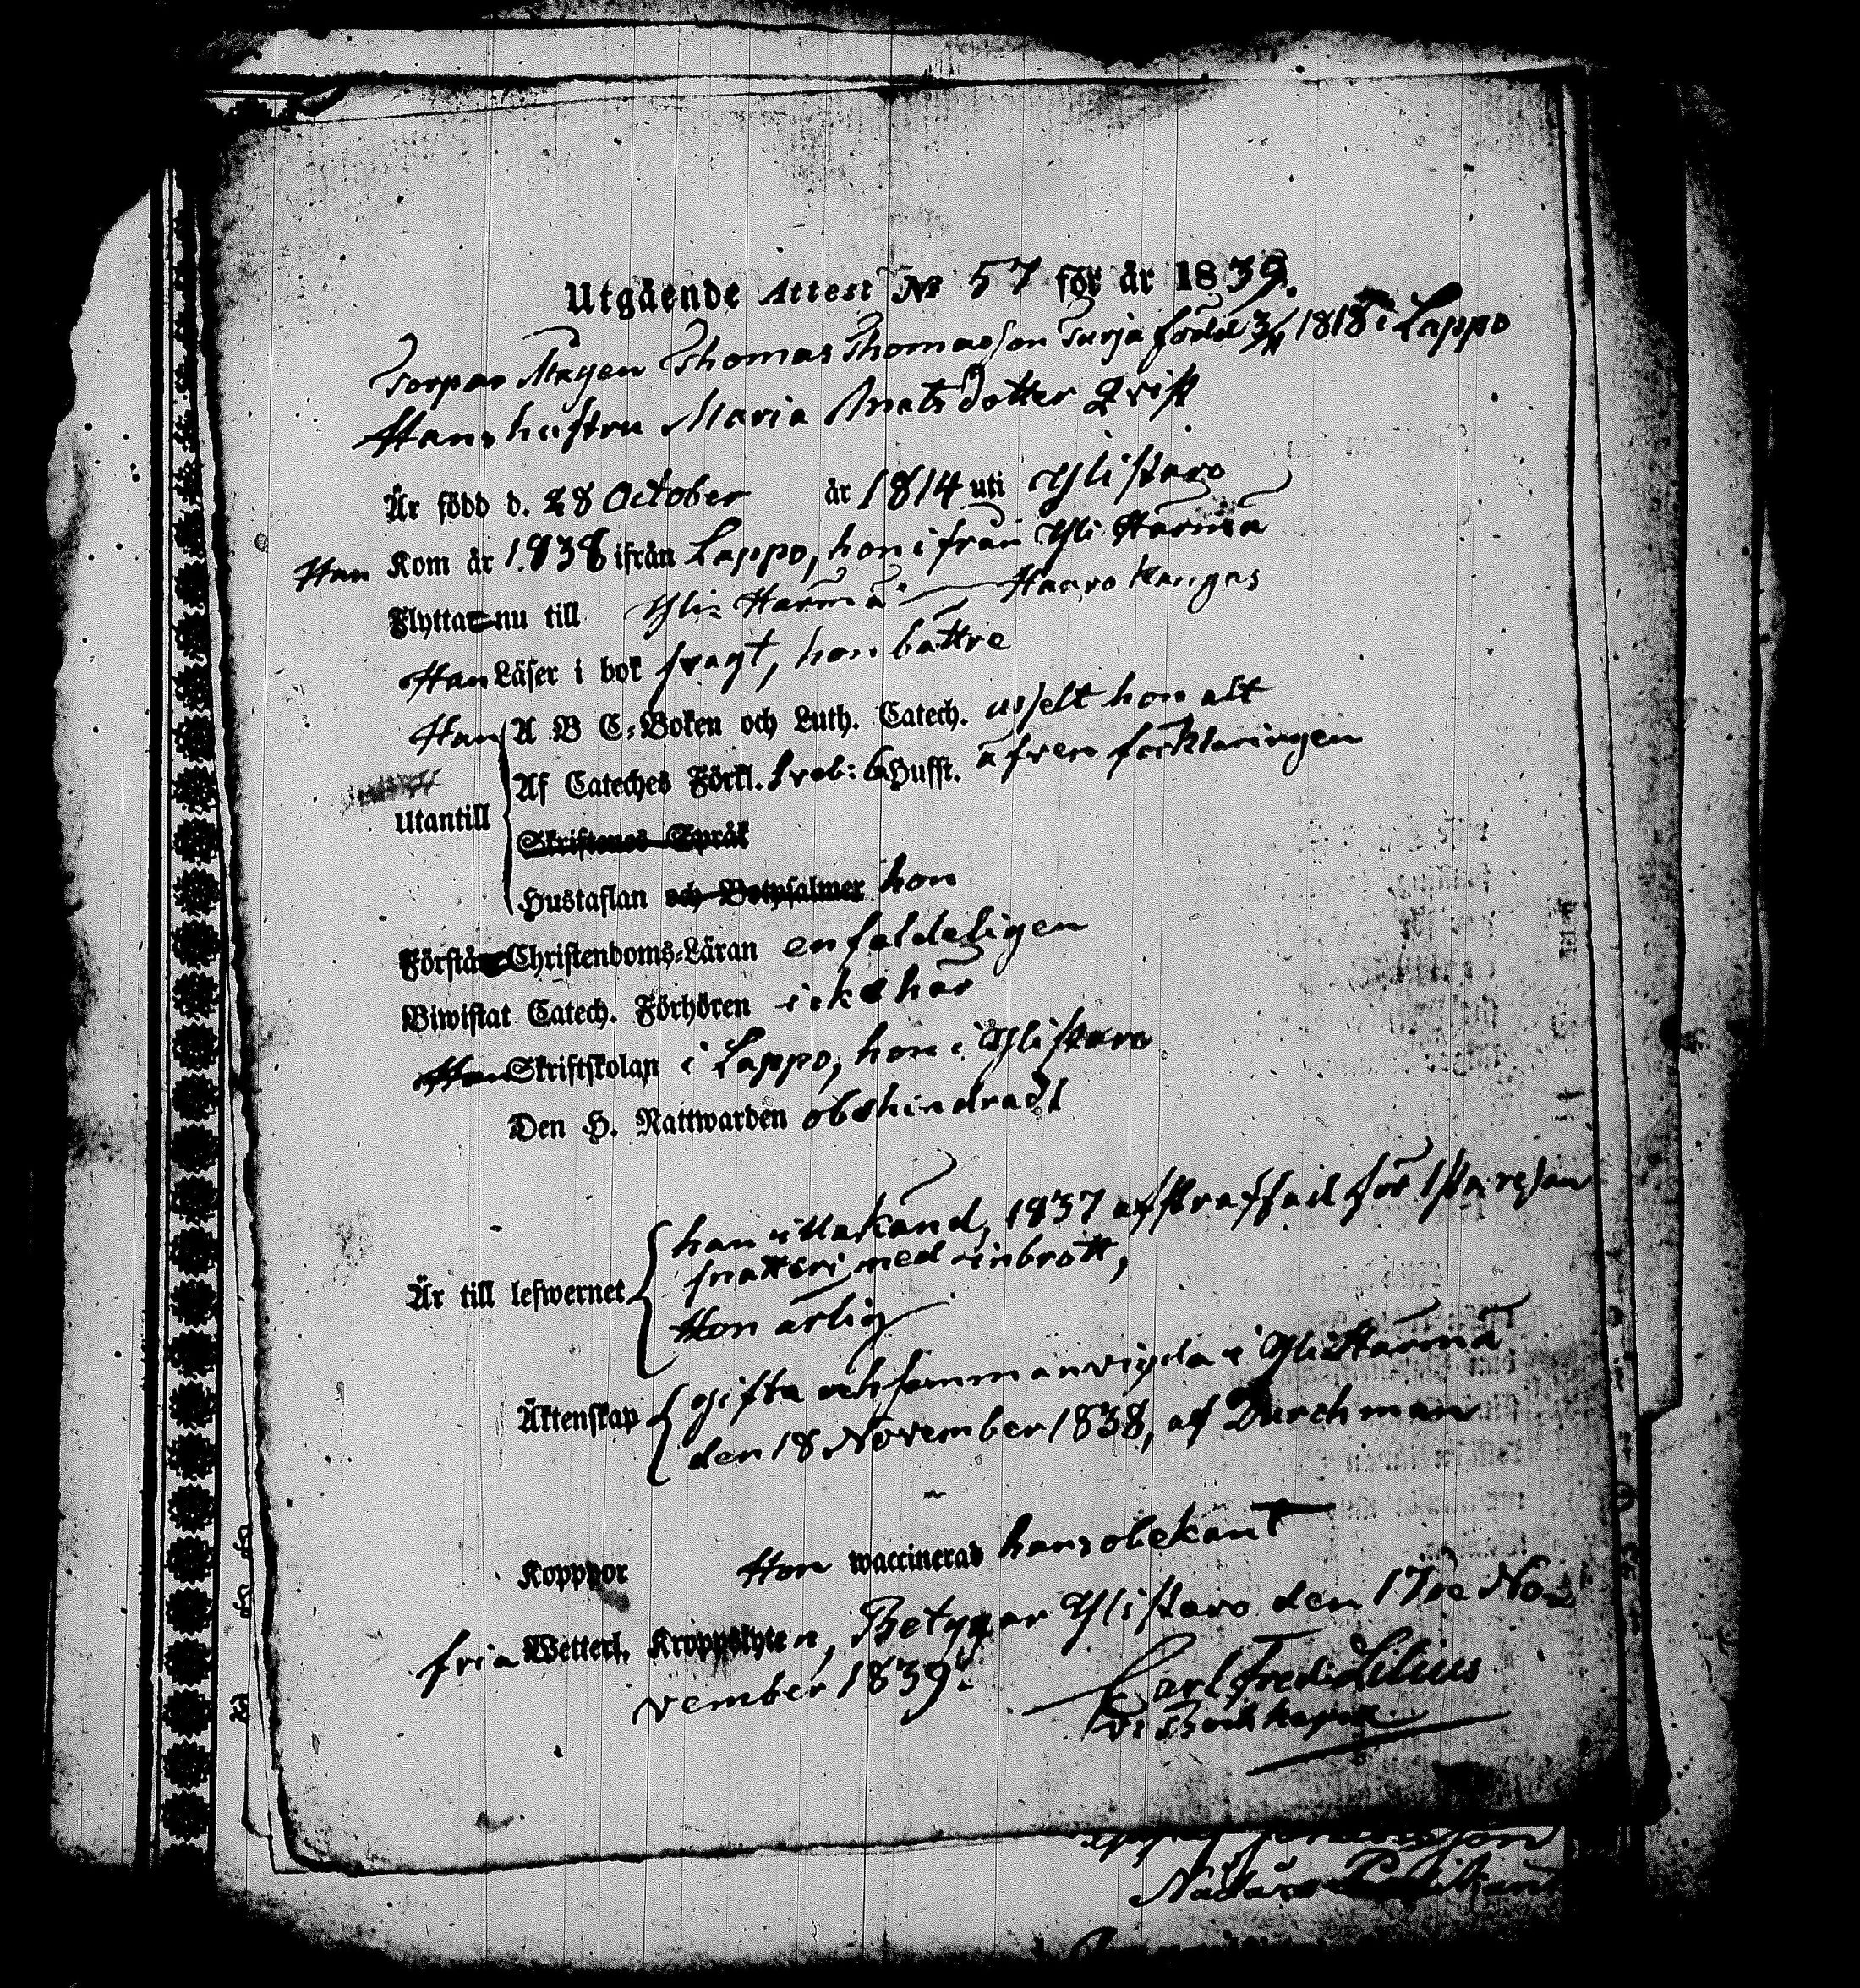 Utgående Attest № 57 för år 1839.
Torpar Mågen Thomas Thomasson Turja född 3/11 1818 i Lappo
Hans hustru Maria Matsdotter Qvist
Är född d. 28 October år 1814 uti Ylistaro
Han Kom år 1838 ifrån Lappo, hon ifrån Yli Härmä
Flytta nu till Yli Härmä Haaro Kangas
Han Läser i bok svagt, hon bättre
Han A B C-Boken och Luth. Catech. usselt hon alt
Af Cateches Förkl. Sveb: 6 Hufst. äfven förklaringen
Utantill
Skriftenes Språk
Hustaflan och Botpsalmer hon
Förstå Christendoms-Läran enfaldeligen
Biwistat Catech. Förhören icke här
Skriftskolan i Lappo, hon i Ylistaro
Den H. Nattwarden obehindradt
han illa känd, 1837 afstraffad för 1sta resan
snatteri med inbrott,
Är till lefwernet
Hon ärlig
gifta och sammanvigda i Yli Härmä
Äktenskap
den 18 November 1838, af Durchman
Koppor Hon waccinerad hans obekant
fria Wetterl. Kroppslyten, Betygar Ylistaro den 17de No=
vember 1839.
Carl Fredr: Lilius
V: Past